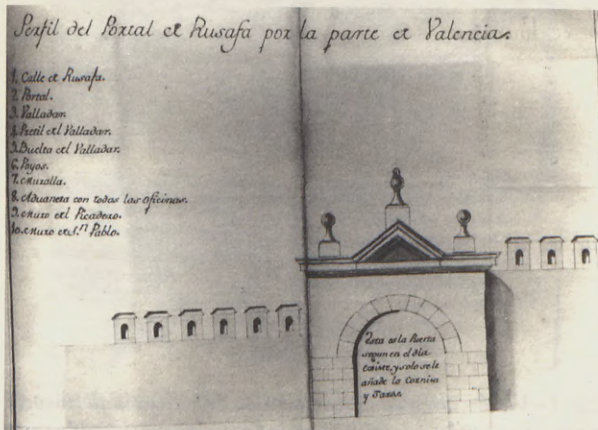 Perfil del Portal de Rusafa por la parte de Valencia.
1. Calle de Rusafa.
2. Portal.
3. Valladar.
4. Pretil del Valladar.
5. Buelta del Valladar.
6. Poyos.
7. Muralla.
8. Aduaneta con todas las oficinas.
9. Muro del Picadero.
10. Muro de S.n Pablo.
Esta es la Puerta
segun en el dia
existe, y solo se le
añade la Cornisa
y Jaras.